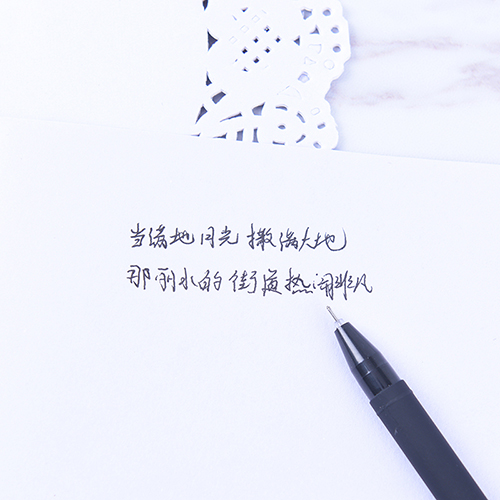 当满地月光撒满大地
那丽水的街道热闹非凡